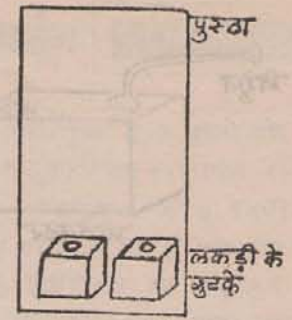 पुस्ठा
लकड़ी के
गुटके